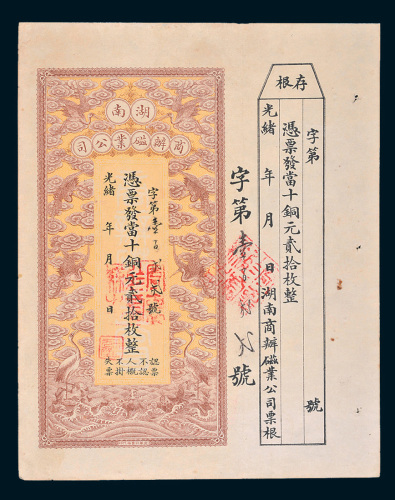 湖南
商辦磁業公司
字第壹百
號
憑票發當十銅元貳拾枚整
光緒 年 月 日
認票不認人概不掛失票
字第壹
號
存根
字第 號
憑票發當十銅元貳拾枚整
光緒 年 月 日湖南商辦磁業公司票根